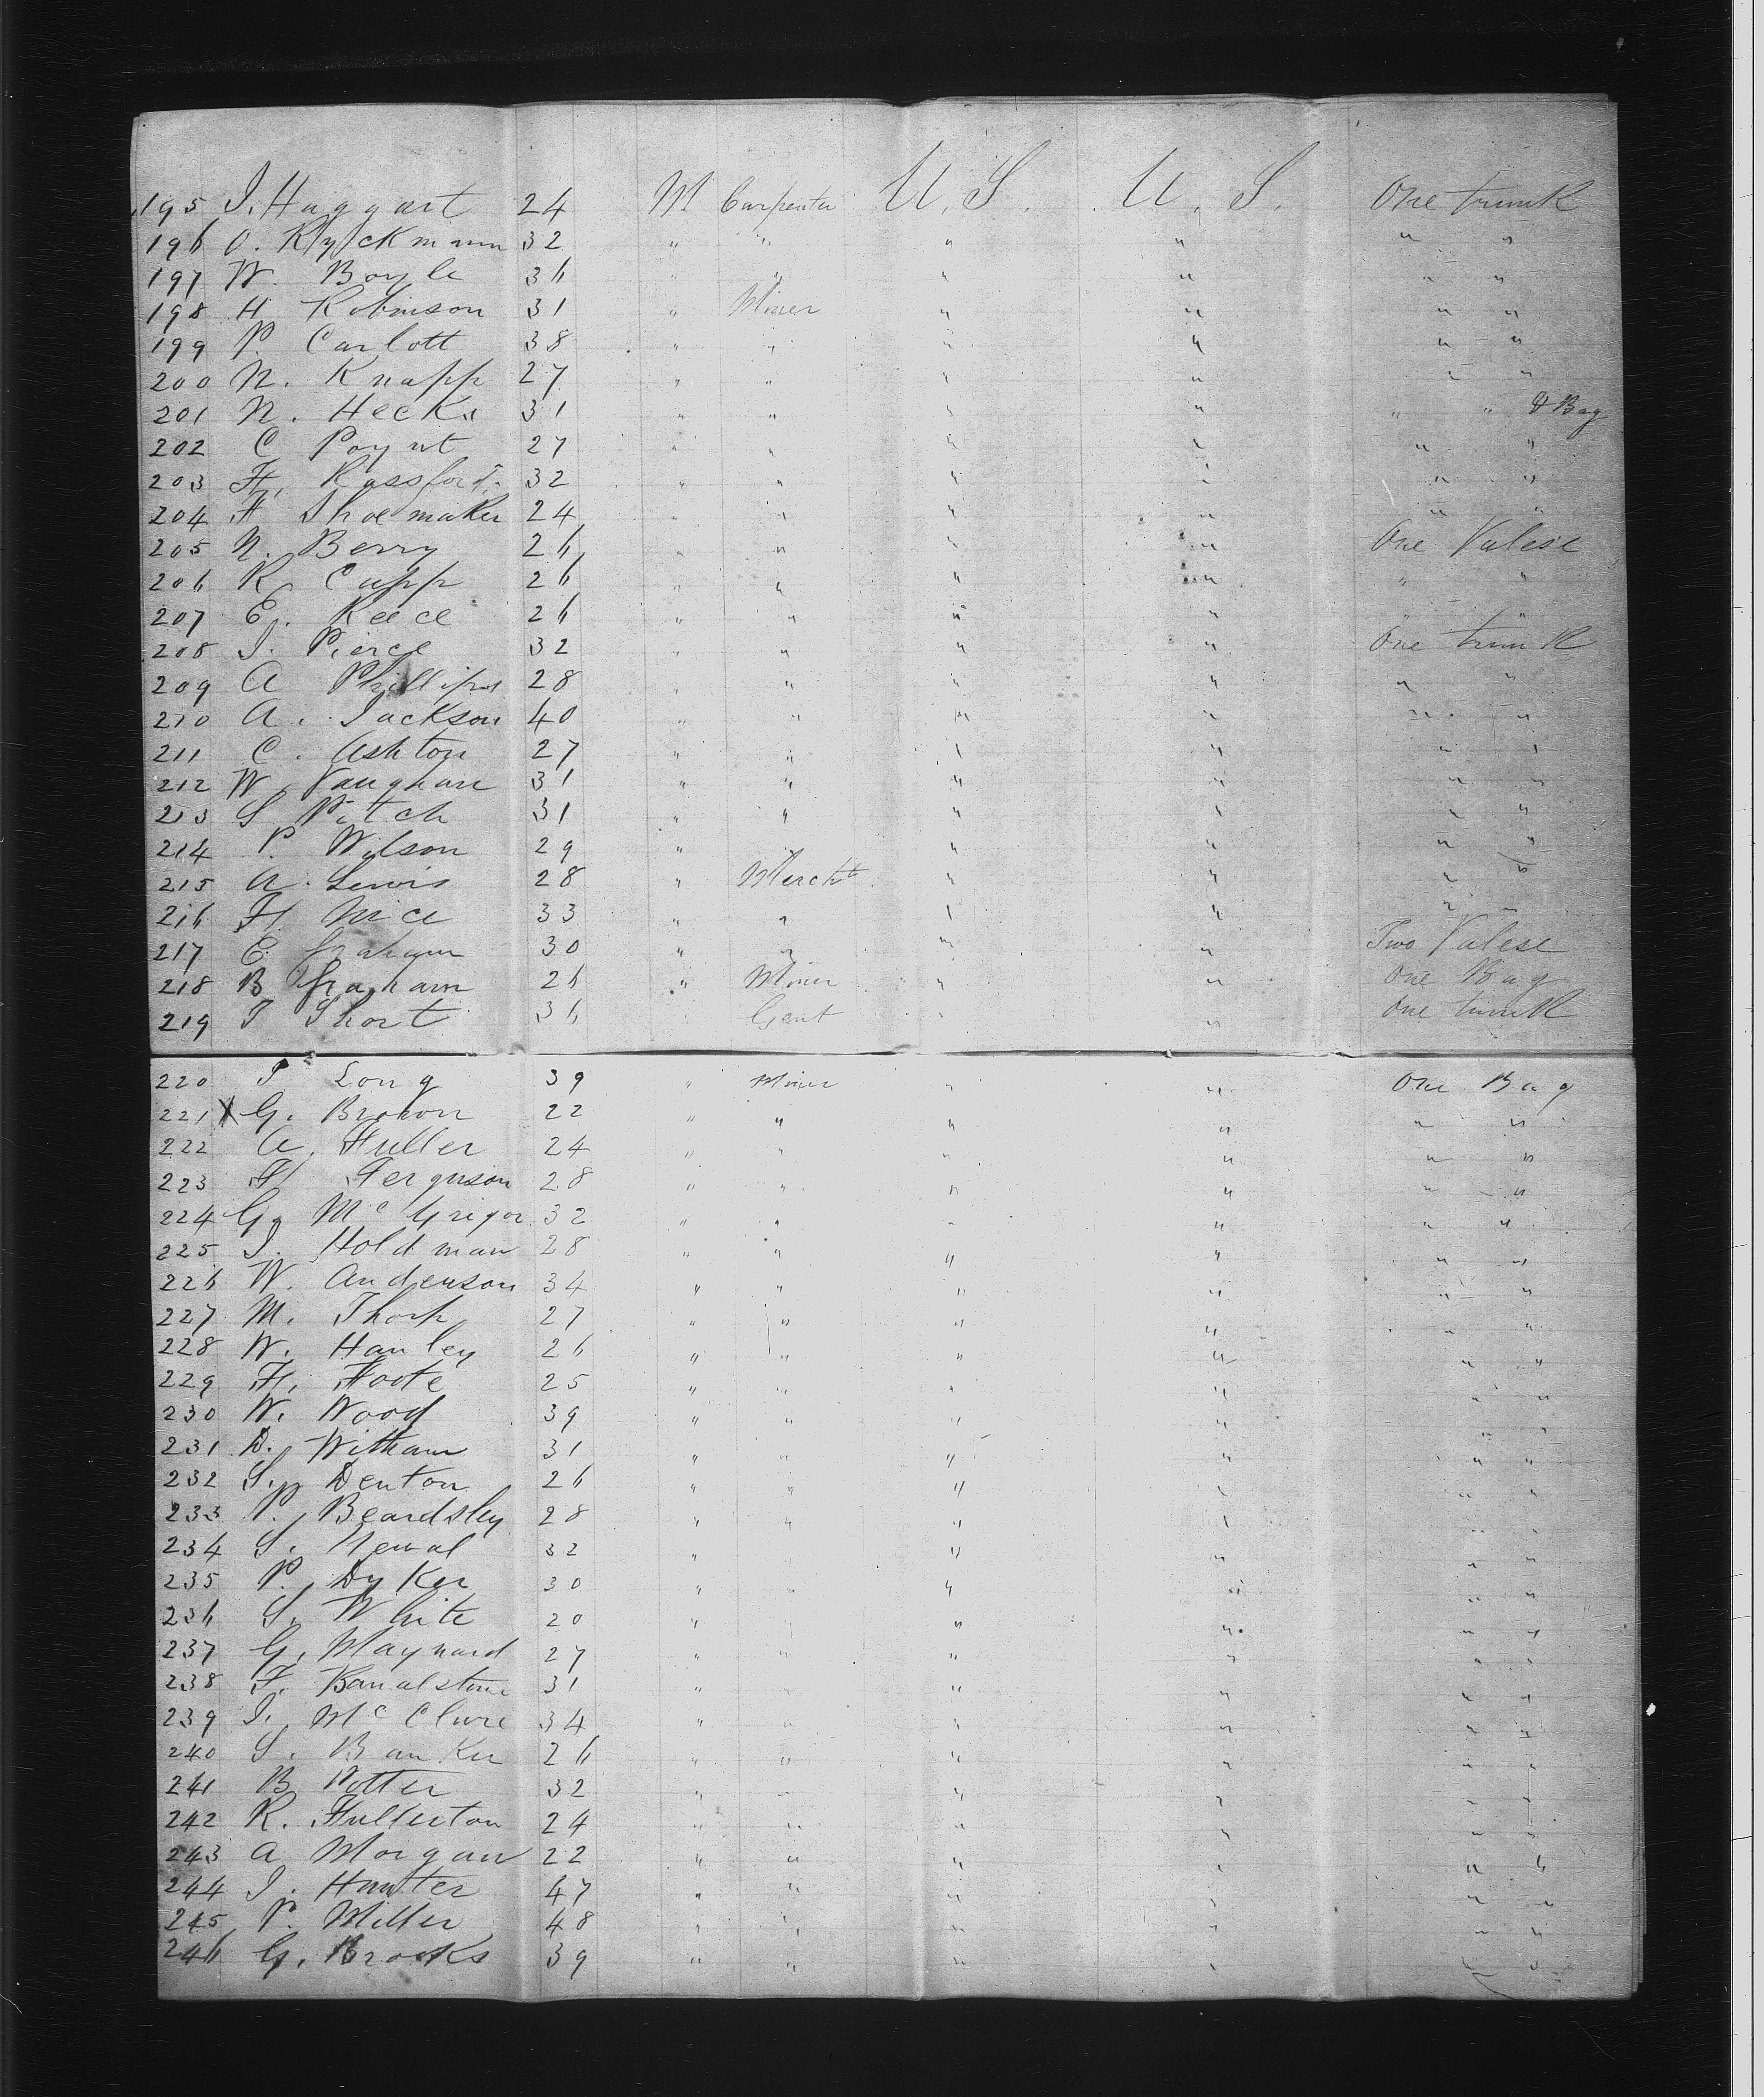 195 J. Haggart 24 M Carpenter U. S. U. S. One trunk
196 O. Ryckmann 32 " " " " " "
197 W. Boyle 36 " " " " " "
198 H. Robinson 31 " Miner " " " "
199 P. Carlott 38 " " " " " "
200 N. Knapp 27 " " " " " "
201 N. Hecks 31 " " " " " " & Bag
202 C Poynt 27 " " " " " "
203 F. 32 " " " " " "
204 F Shoemaker 24 " " " " " "
205 N. Berry 26 " " " " One Valese
206 R. Cupp 26 " " " " " "
207 E. Reece 26 " " " " " "
208 J. Pierce 32 " " " " One trunk
209 A Phillips 28 " " " " " "
210 A. Jackson 40 " " " " " "
211 C. Ashton 27 " " " " " "
212 W. Vaughan 31 " " " " " "
213 S Pitch 31 " " " " " "
214 P. Wilson 29 " " " " " "
215 A. Lewis 28 " Mercht " " " "
216 F. Nice 33 " " " " " "
217 E. Graham 30 " " " " Two Valese
218 B Graham 26 " Miner " " One Bag
219 T Short 36 Gent " " One trunk
220 T Long 39 " Miner " " One Bag
221 X G. Brown 22 " " " " " "
222 A. Fuller 24 " " " " " "
223 F Ferguson 28 " " " " " "
224 G. McGrigor 32 " " " " " "
225 J. Holdman 28 " " " " " "
226 W. Anderson 34 " " " " " "
227 M. Thorp 27 " " " " " "
228 W. Hanley 26 " " " " " "
229 F. Foote 25 " " " " " "
230 W. Wood 39 " " " " " "
231 D. Witham 31 " " " " " "
232 S. Denton 26 " " " " " "
233 P. Beardsley 28 " " " " " "
234 S. Newal 32 " " " " " "
235 P. Dyker 30 " " " " " "
236 S. White 20 " " " " " "
237 G. Maynard 27 " " " " " "
238 F. 31 " " " " " "
239 J. McClure 34 " " " " " "
240 S. Banker 26 " " " " " "
241 B Potter 32 " " " " " "
242 R. Fullerton 24 " " " " " "
243 A Morgan 22 " " " " " "
244 J. Hunter 47 " " " " " "
245 P. Miller 48 " " " " " "
246 G. Brooks 39 " " " " " "